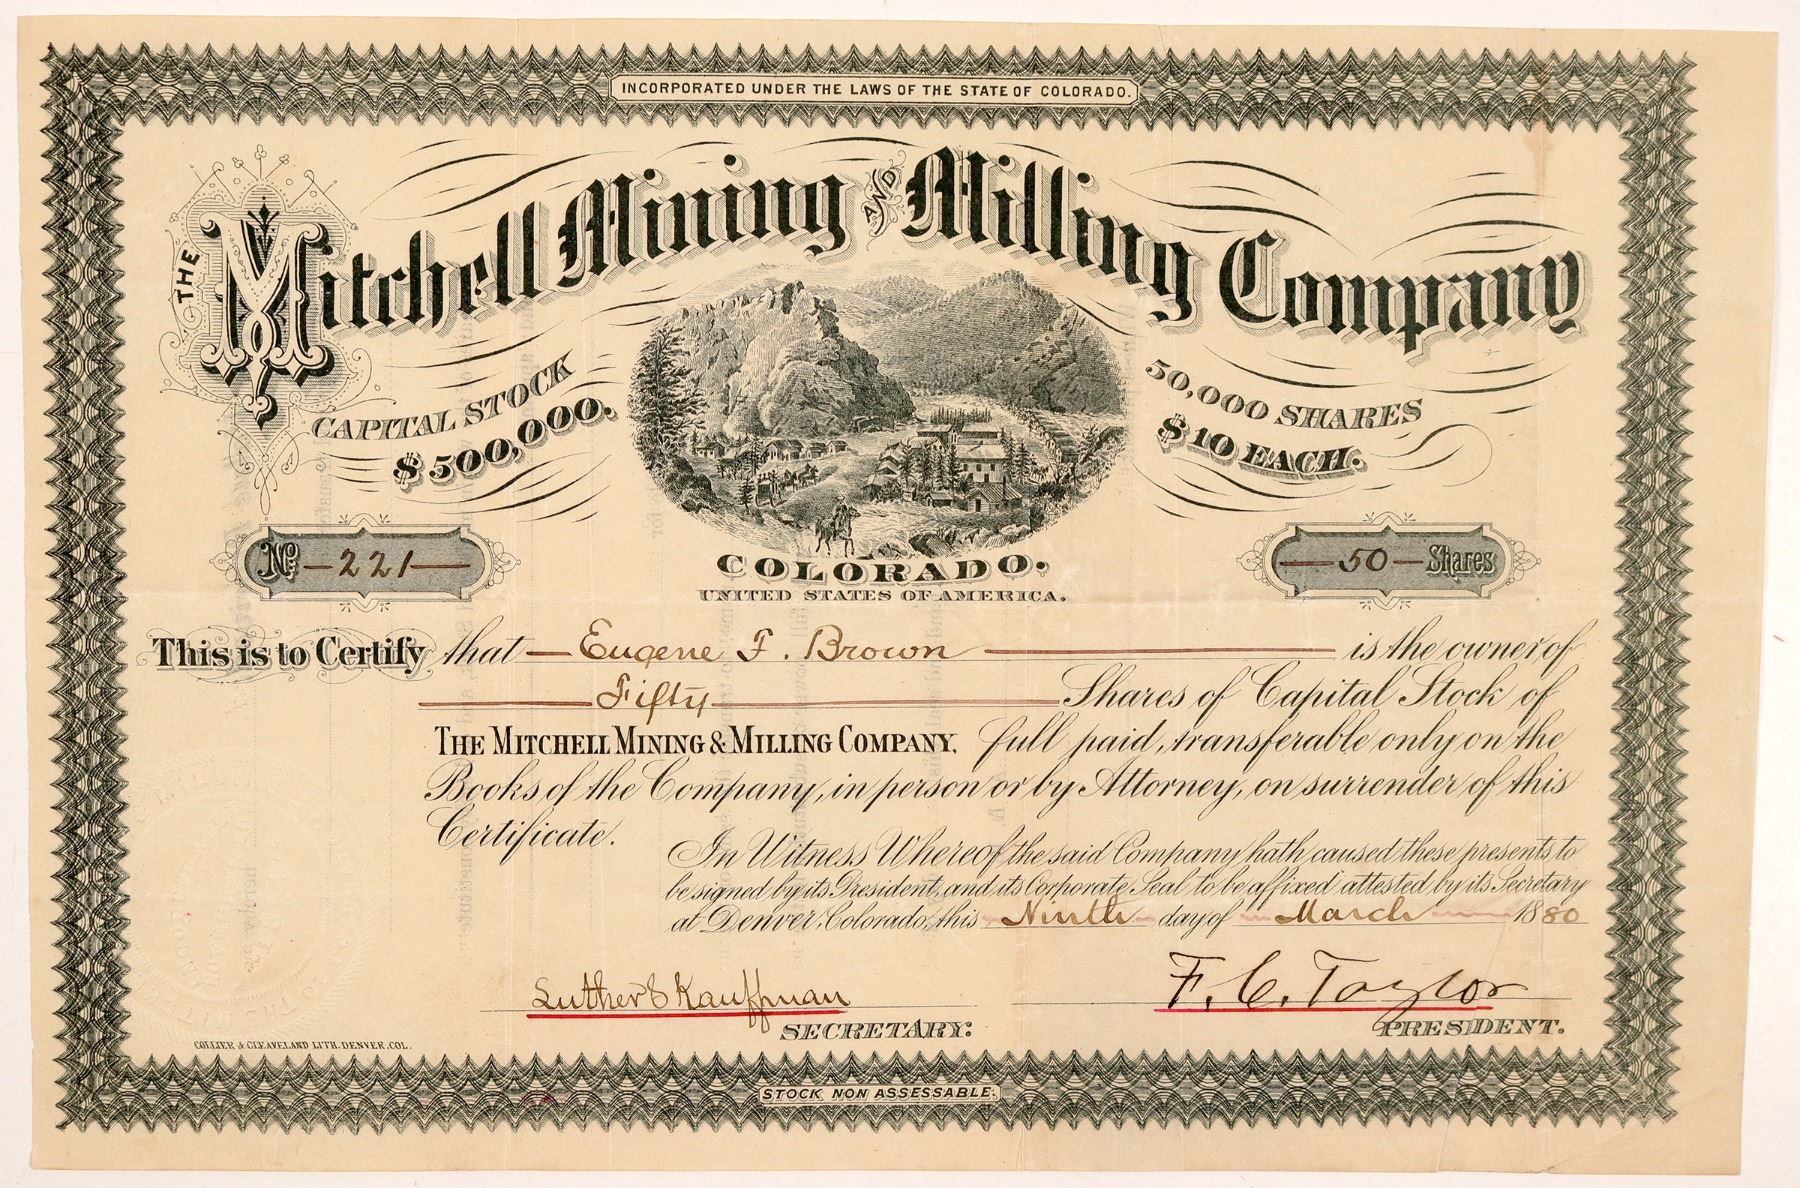 INCORPORATED UNDER THE LAWS OF THE STATE OF COLORADO.
THE Mitchell Mining AND Milling Company
CAPITAL STOCK
$500,000.
50,000 SHARES
$10 EACH.
COLORADO.
UNITED STATES OF AMERICA.
No. - 221 -
- 50 - Shares
This is to Certify that - Eugene F. Brown - is the owner of
Fifty Shares of Capital Stock of
THE MITCHELL MINING & MILLING COMPANY, full paid, transferable only on the
Books of the Company, in person or by Attorney, on surrender of this
Certificate.
In Witness Whereof, the said Company hath caused these presents to
be signed by its President, and its Corporate Seal to be affixed attested by its Secretary
at Denver, Colorado, this - Ninth - day of - March - 1880
Luther S Kauffman
SECRETARY.
F. C. Taylor
PRESIDENT.
COLLIER & CLEAVELAND LITH. DENVER, COL.
STOCK NON ASSESSABLE.